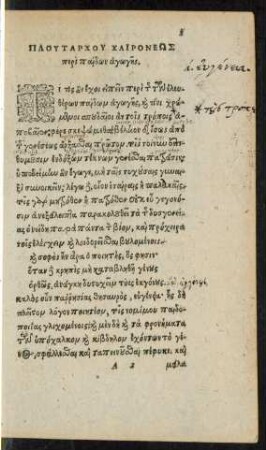 ΠΛΟΥΤΑΡΧΟΥ ΧΑΙΡΟΝΕΩΣ
περὶ παίδων ἀγωγῆς.
Τί τις ἂν ἔχοι εἰπεῖν περὶ τῆς τῶν ἐλευ
θέρων παίδων ἀγωγῆς, καὶ τίνι χρώ
μενοι σπουδαῖοι τοὺς τρόπους ἀ
ἀπὸ
τῆς γενέσεως ἄρξασθαι πρῶτον. τοῖς τοίνυν ἐπι
θυμοῦσιν ἐνδόξων τέκνων γενέσθαι πατράσιν
ὑποθείμην ἂν ἔγωγε, μὴ ταῖς τυχούσαις γυναι
ξὶ συνοικεῖν· λέγω δ' οἷον ἑταίραις ἢ παλλακαῖς.
τοῖς γὰρ μητρόθεν ἢ πατρόθεν οὐκ εὖ γεγονό
σιν ἀνεξάλειπτα παρακολουθεῖ τὰ τῆς δυσγενεί
ας ὀνείδη παρὰ πάντα τὸν βίον, καὶ πρόχειρα
τοῖς ἐλέγχειν καὶ λοιδορεῖσθαι βουλομένοις.
ἦ σοφὸς ἦν ἄρα ὁ ποιητὴς, ὅς φησιν·
ὅταν δὲ κρηπὶς μὴ καταβληθῇ γένους
ὀρθῶς, ἀνάγκη δυστυχεῖν τοὺς ἐκγόνους.
καλὸς οὖν παρρησίας θησαυρὸς, εὐγένεια. ἧς δὴ
πλεῖστον λόγον ποιητέον, τοῖς νομίμου παιδο
ποιίας γλιχομένοις. καὶ μὲν δὴ τὰ φρονήματα
τῶν ὑπόχαλκον καὶ κίβδηλον ἐχόντων τὸ γέ
νος, σφάλλεσθαι καὶ ταπεινοῦσθαι πέφυκε. καὶ
A 2 μάλα